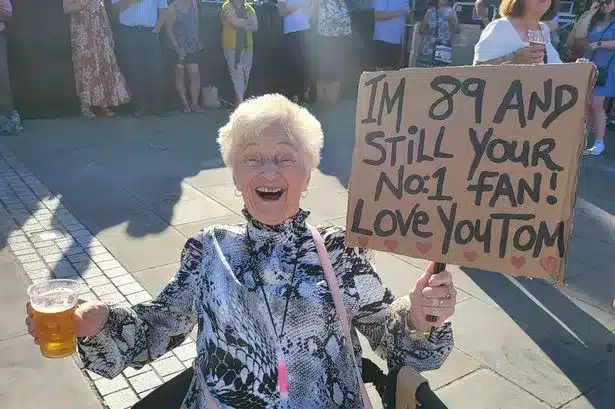 IM 89 AND
STILL YOUR
NO:1 FAN!
LOVE YOU TOM